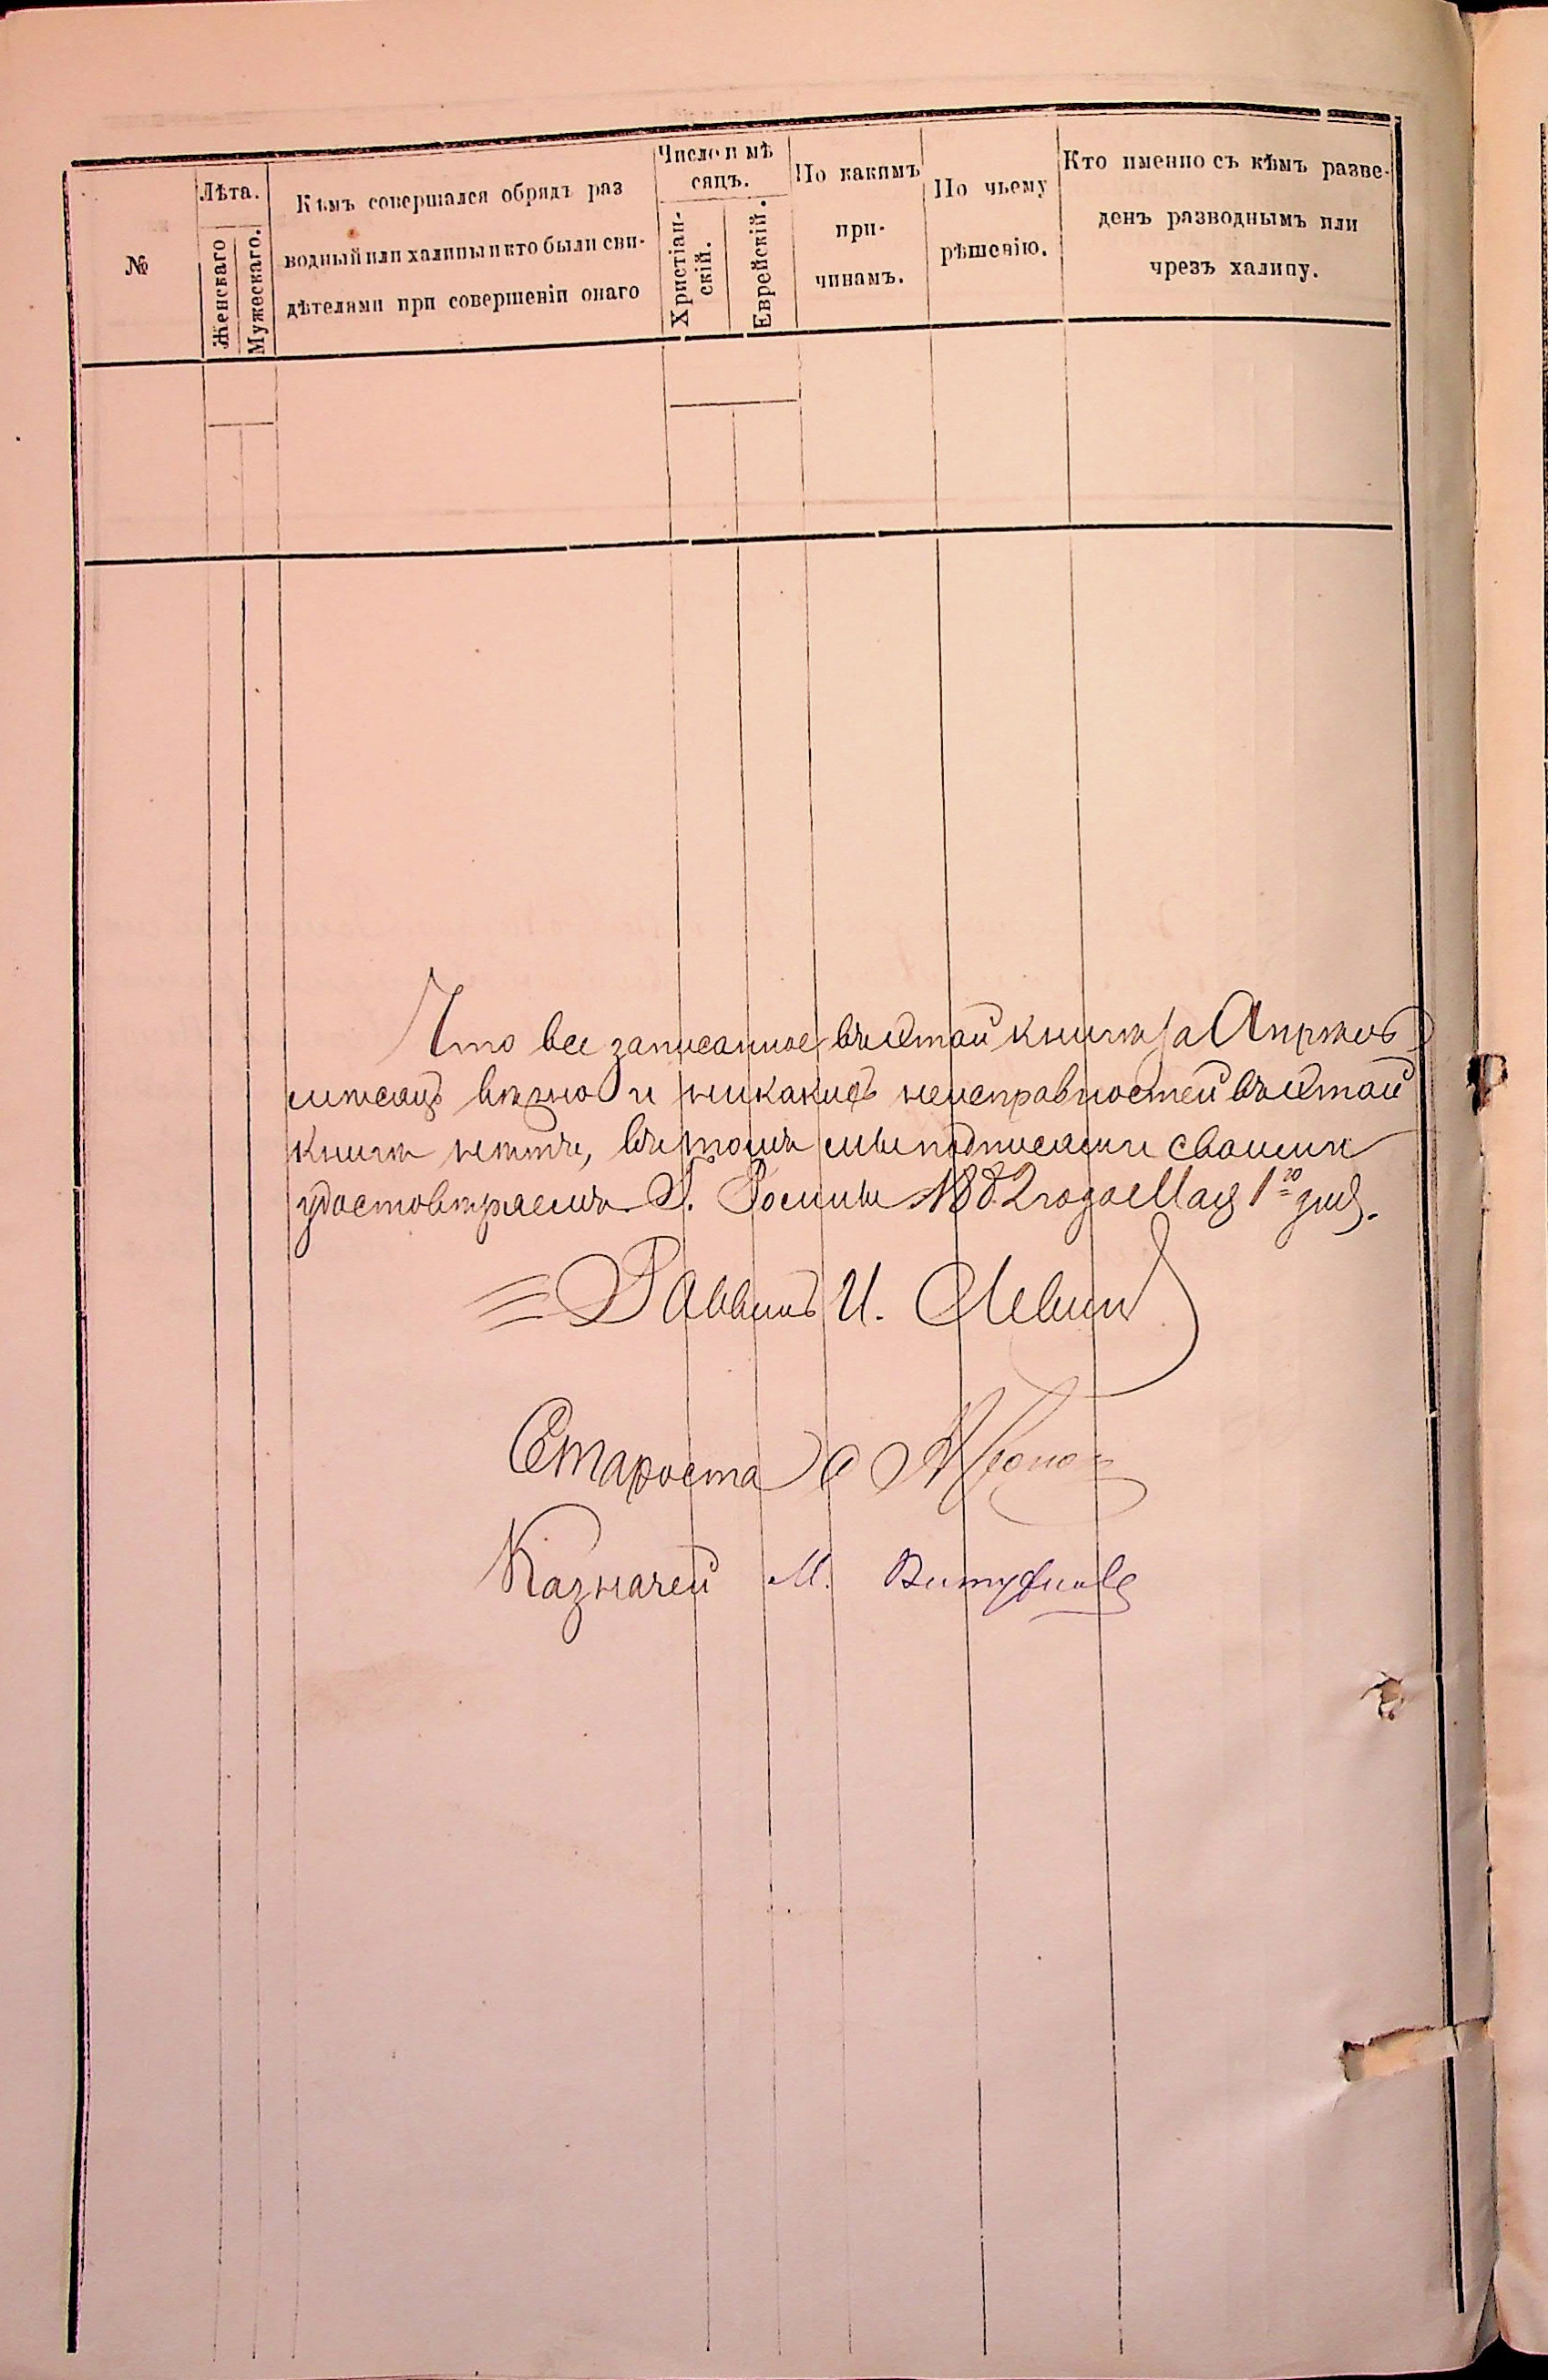 №
Лѣта.
Женскаго
Мужескаго.
Кѣмъ совершался обрядъ раз
водный или халицы и кто были сви-
дѣтелями при совершеніи онаго
Число и мѣ
сяцъ.
Христіан-
скій.
Еврейскій.
По какимъ
при-
чинамъ.
По чьему
рѣшенію.
Кто именно съ кѣмъ разве-
денъ разводнымъ или
чрезъ халицу.
Что все записанное въ этой книгѣ за Апрѣль
мѣсяцъ вѣрно и никакихъ неисправностей въ этой
книгѣ нѣтъ, въ томъ мы подписами своими
удостовѣряемъ Г. Ромны 1882 года Мая 1го дня.
Раввинъ И. Левин
Староста
Казначей М.